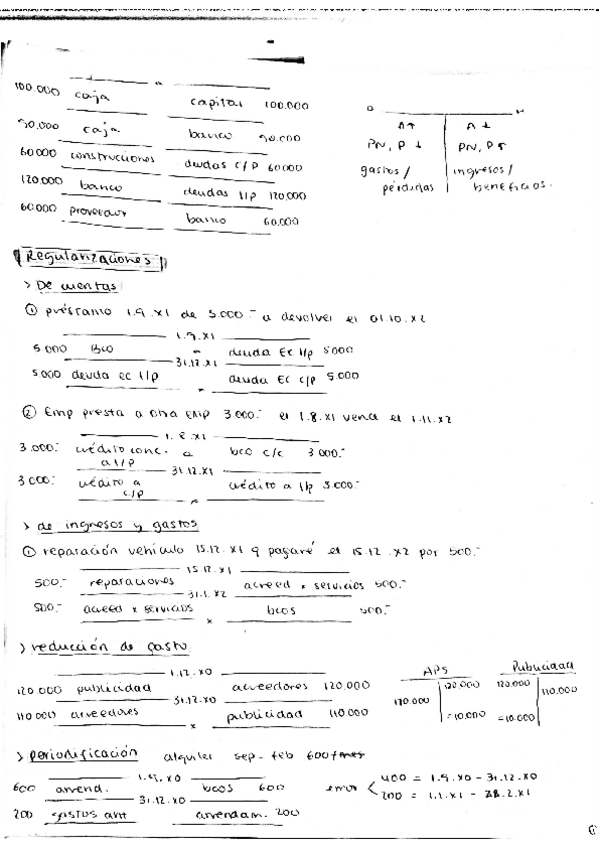 100.000 caja a capital 100.000
90.000 caja banco 90.000
60000 construcciones deudas c/p 60000
120.000 banco deudas l/p 120.000
60.000 proveedor banco 60.000
D H
A↑ A↓
PN, P ↓ PN, P↑
gastos / ingresos /
pérdidas beneficios.
Regularizaciones
> De cuentas
① préstamo 1.9.X1 de 5.000.- a devolver el 01.10.X2
1.9.X1
5.000 Bco a deuda EC l/p 5.000
31.12.X1
5.000 deuda ec l/p a deuda EC c/p 5.000
② Emp presta a otra emp 3.000.- el 1.8.X1 vence el 1.11.X2
1.8.X1
3.000.- crédito conc. a bco c/c 3.000.-
a l/p
31.12.X1
3.000.- crédito a crédito a l/p 3.000.-
c/p a
> de ingresos y gastos
① reparación vehículo 15.12.X1 q pagaré el 15.12.X2 por 500.-
15.12.X1
500.- reparaciones acreed x servicios 500.-
31.1.X2
500.- acreed x servicios bcos 500.-
x
> reducción de gasto
1.12.X0
120.000 publicidad acreedores 120.000
31.12.X0
110.000 acreedores x publicidad 110.000
APS Publicidad
110.000 120.000 120.000 110.000
=10.000 =10.000
> periodificación alquiler sep-feb 600/mes
1.9.X0
600 arrend. bcos 600
31.12.X0
200 gastos ant arrendam. 200
error 400 = 1.9.X0 - 31.12.X0
200 = 1.1.X1 - 28.2.X1